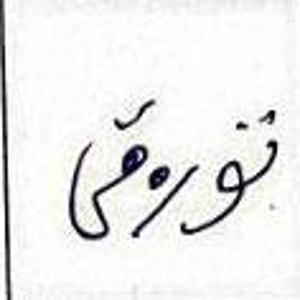 تورەقی